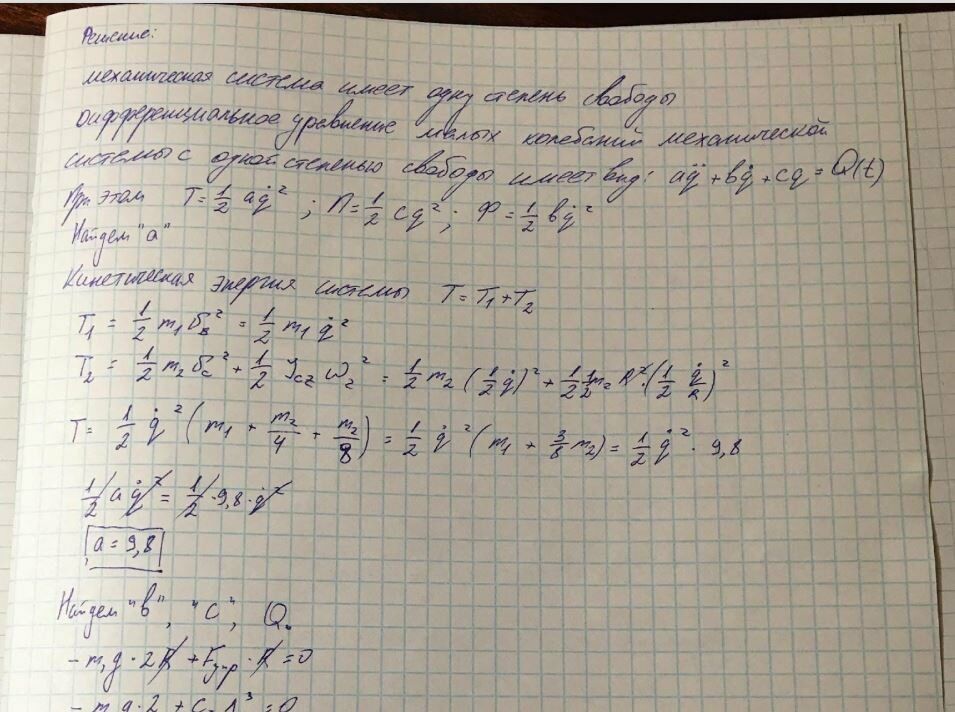 Решение:
механическая система имеет одну степень свободы
дифференциальное уравнение малых колебаний механической
системы с одной степенью свободы имеет вид: aq̈ + bq̇ + cq = Q(t)
При этом T = 1/2 aq̇² ; П = 1/2 cq² ; Ф = 1/2 bq̇²
Найдем "a"
Кинетическая энергия системы T = T₁ + T₂
T₁ = 1/2 m₁ v_B² = 1/2 m₁ q̇²
T₂ = 1/2 m₂ v_C² + 1/2 J_cz ω_z² = 1/2 m₂ (1/2 q̇)² + 1/2 1/2 m₂ R² · (1/2 q̇/R)²
T = 1/2 q̇² (m₁ + m₂/4 + m₂/8) = 1/2 q̇² (m₁ + 3/8 m₂) = 1/2 q̇² · 9,8
1/2 a q̇² = 1/2 · 9,8 · q̇²
a = 9,8
Найдем "b", "c", Q.
- m₁g · 2R + Fупр · R = 0